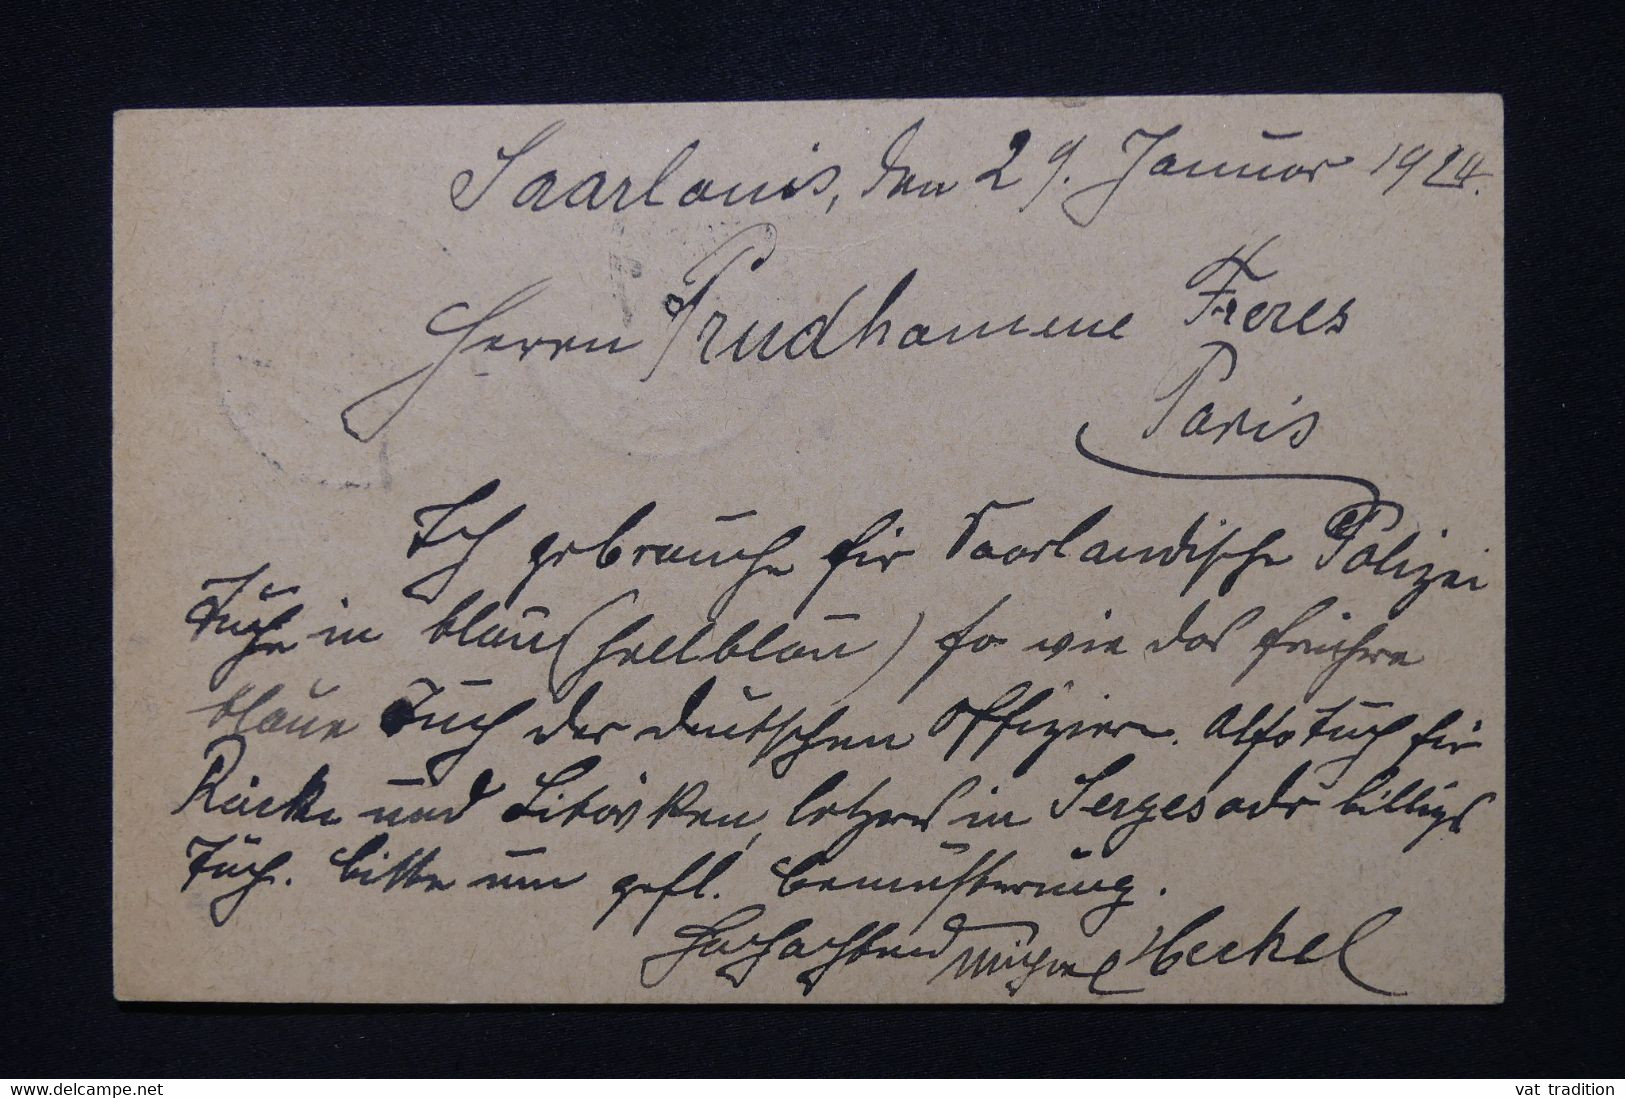 Saarlouis, den 29. Januar 1924.
Herrn Prudhomme Freres
Paris
Ich gebrauche für Saarlandische Polizei
Tuche in blau (hellblau) so wie das frühere
blaue Tuch der deutschen Offiziere. Also Tuch für
Röcke und Litövken, letzres in Serges oder billigs
Tuch. bitte um gefl. bemusterung.
Hochachtend Heckel
delcampe.net
vat tradition